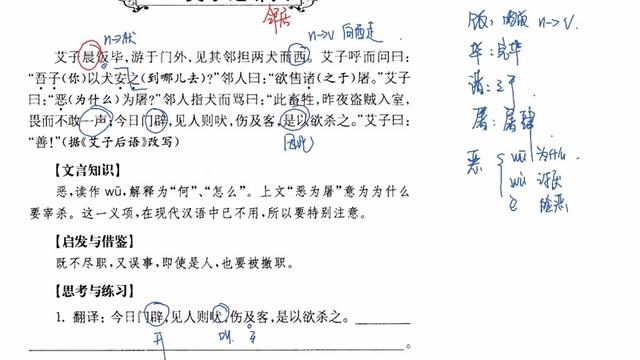 邻居
n→状
n→v 向西走
艾子晨饭毕，游于门外，见其邻担两犬而西。艾子呼而问曰：
“吾子(你)以犬安之(到哪儿去)？”邻人曰：“欲售诸(之于)屠。”艾子
曰：“恶(为什么)为屠？”邻人指犬而骂曰：“此畜牲，昨夜盗贼入室，
畏而不敢一声；今日门辟，见人则吠，伤及客，是以欲杀之。”艾子曰：
“善！”(据《艾子后语》改写)
因此
【文言知识】
恶，读作 wū，解释为“何”、“怎么”。上文“恶为屠”意为为什么
要宰杀。这一义项，在现代汉语中已不用，所以要特别注意。
【启发与借鉴】
既不尽职，又误事，即使是人，也要被撤职。
【思考与练习】
1. 翻译：今日门辟，见人则吠，伤及客，是以欲杀之。
。
开
叫
饭： n→v.
毕：完毕
诸：之于
屠：屠肆
恶 wū 为什么
wù 讨厌
è 险恶